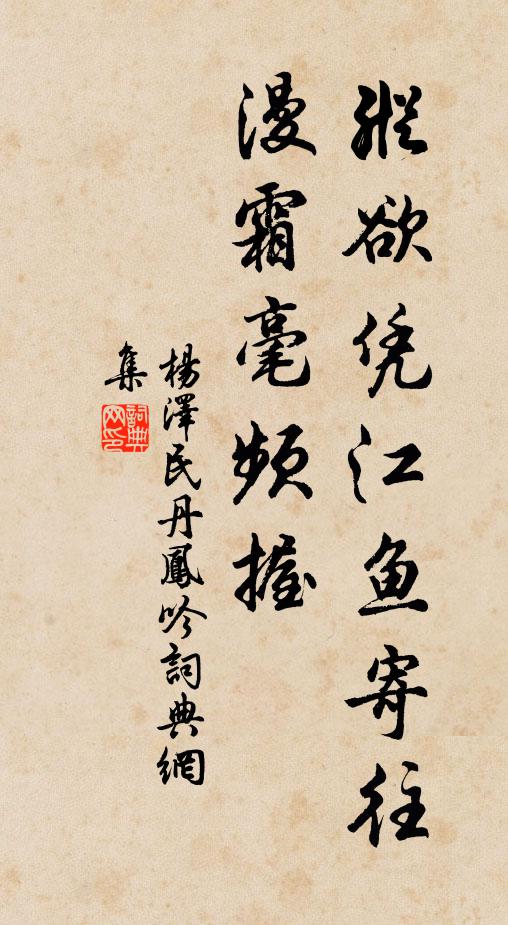 縱欲凭江鱼寄往
漫霜毫頻握
楊澤民丹鳳吟詞典網
集
詞典网印